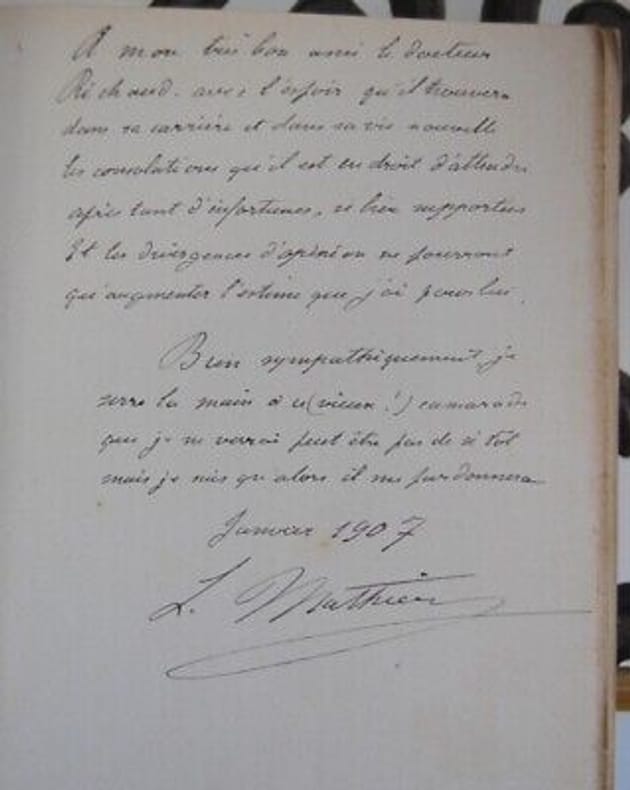 A mon très bon ami le docteur
Richaud. avec l'espoir qu'il trouvera
dans sa carrière et dans sa vie nouvelle
les consolations qu'il est en droit d'attendre
après tant d'infortunes, si bien supportées
Et les divergences d'opinion ne pourront
qu'augmenter l'estime que j'ai pour lui.
Bien sympathiquement je
serre la main à ce (vieux!) camarade
que je ne verrai peut être pas de si tôt
mais je sais qu'alors il me pardonnera
Janvier 1907
L. Mathieu